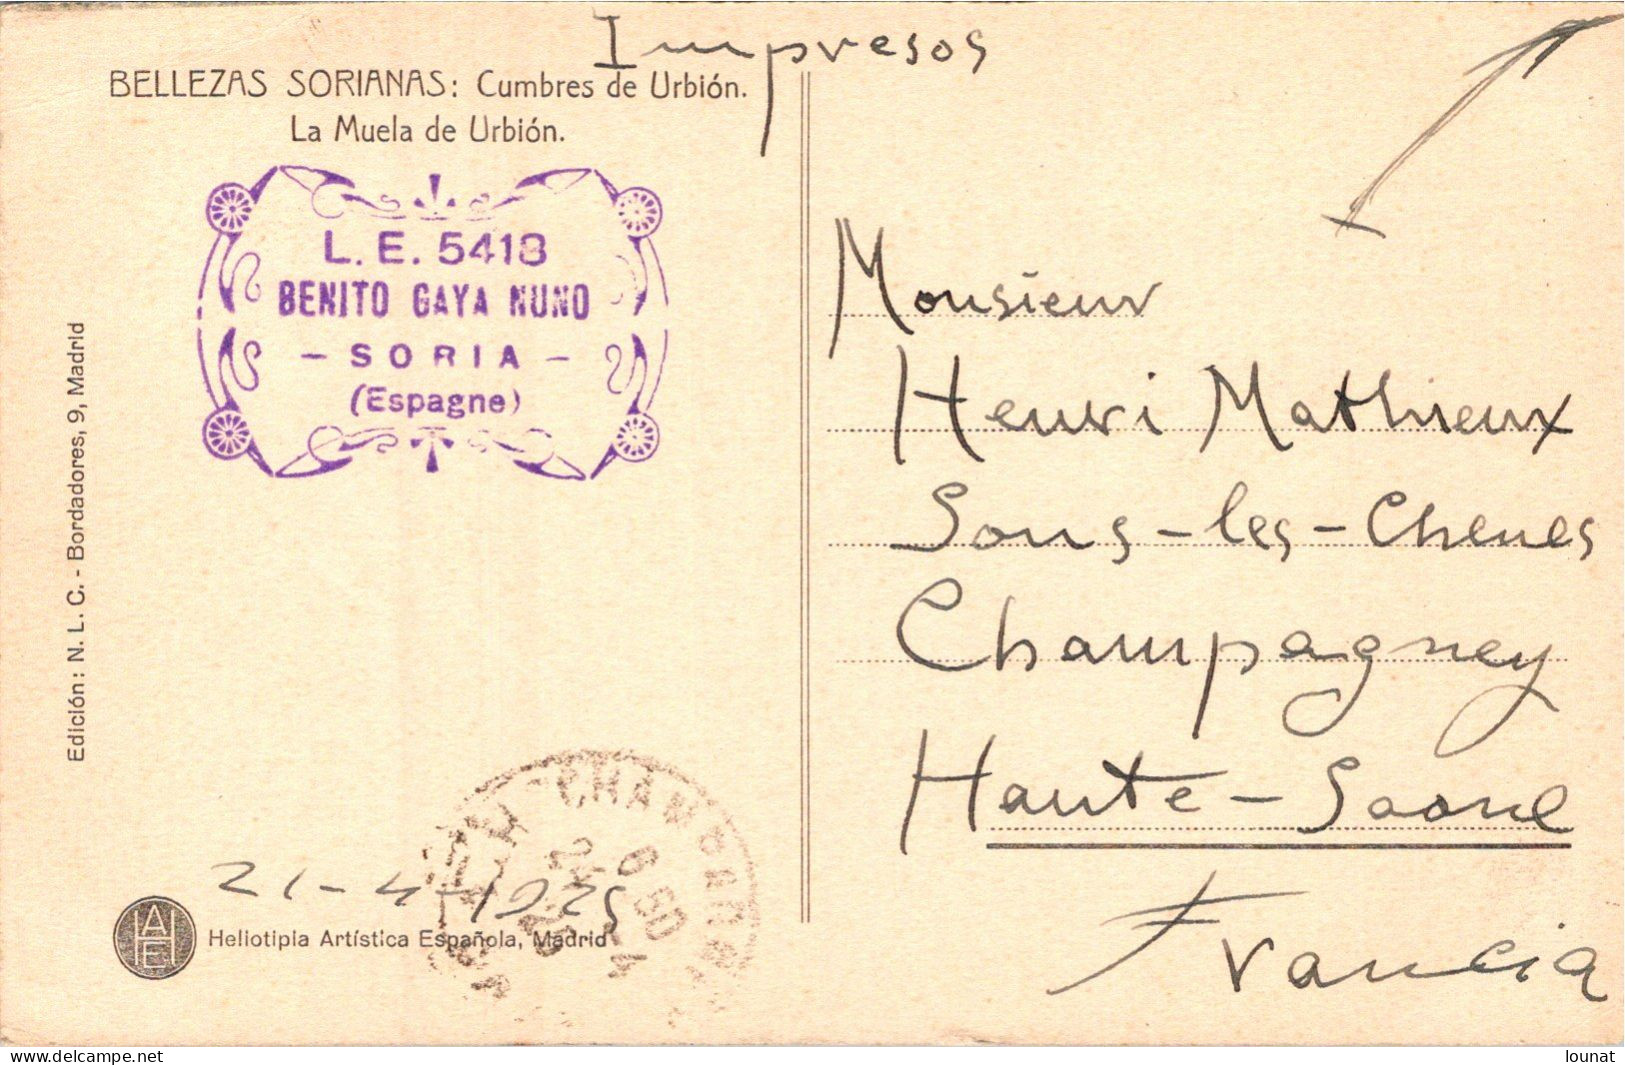 Impresos
BELLEZAS SORIANAS: Cumbres de Urbión.
La Muela de Urbión.
L. E. 5418
BENITO GAYA NUNO
- SORIA -
(Espagne)
Edición: N. L. C. - Bordadores, 9, Madrid
Monsieur
Henri Mathieux
Sous-les-Chenes
Champagney
Haute-Saone
Francia
21-4-1925
HAE
Heliotipia Artística Española, Madrid
delcampe.net
lounat